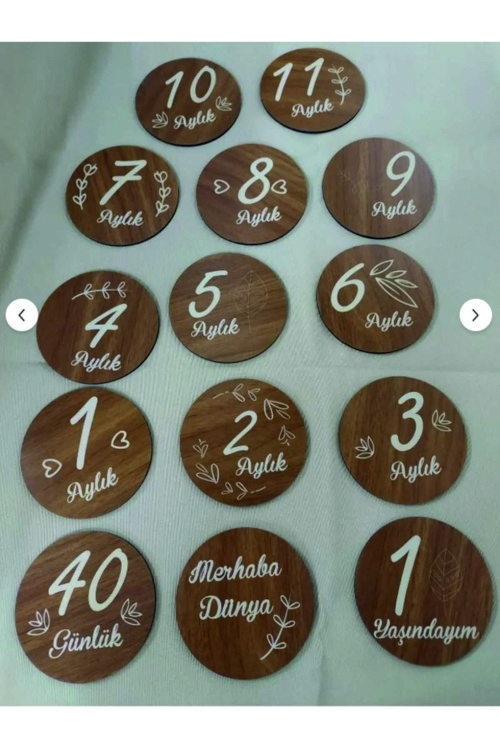 10
Aylık
11
Aylık
7
Aylık
8
Aylık
9
Aylık
4
Aylık
5
Aylık
6
Aylık
1
Aylık
2
Aylık
3
Aylık
40
Günlük
Merhaba
Dünya
1
Yaşındayım